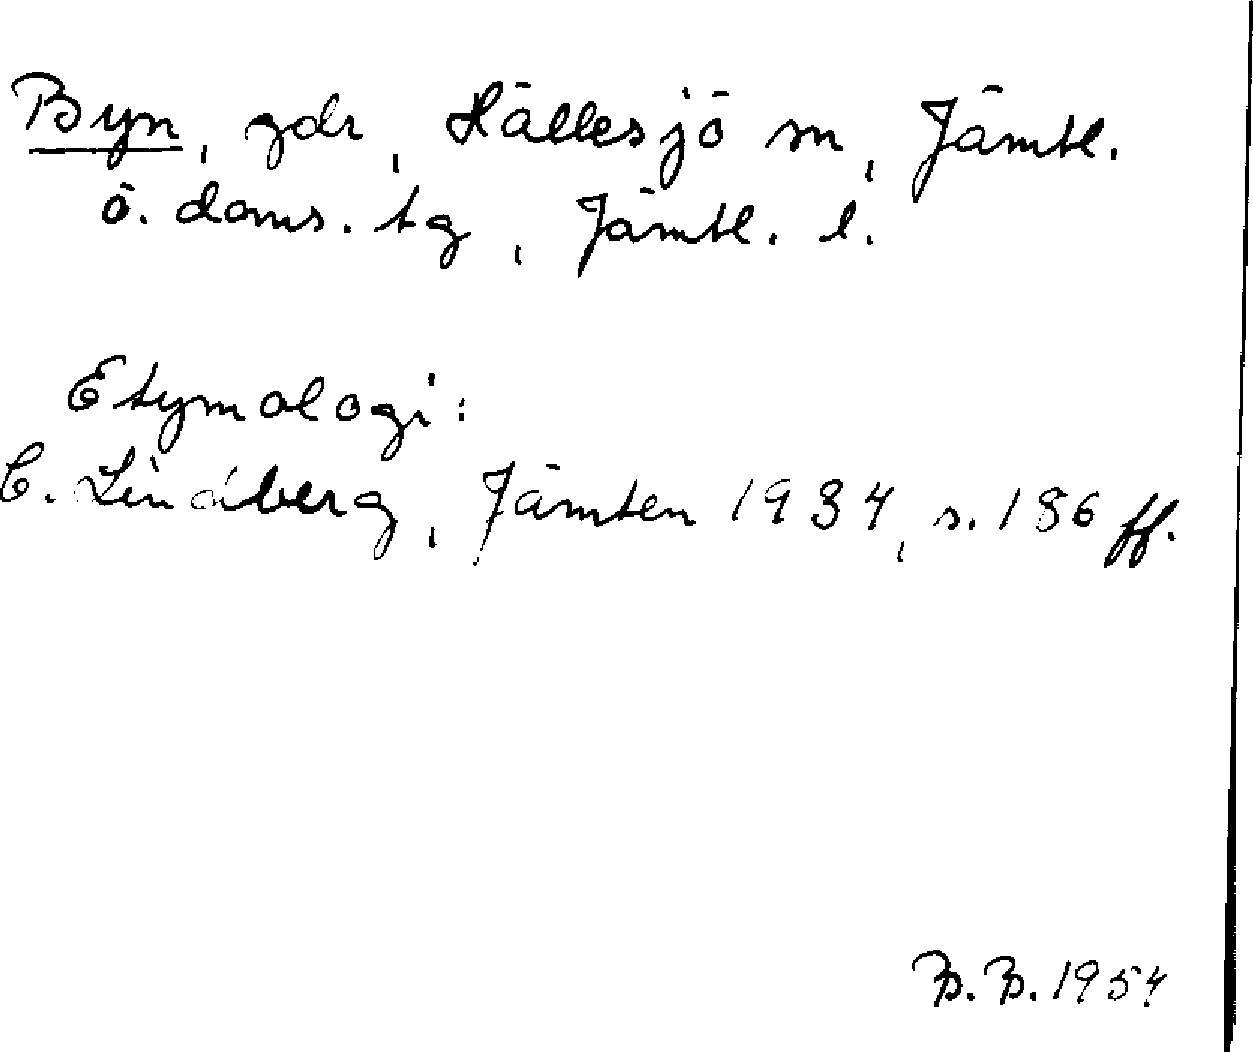 Byn, gdr, Hällesjö sn, Jämtl.
ö. doms. tg, Jämtl. l.
Etymologi:
C. Lindberg, Jämten 1934, s. 186 ff.
B. B. 1954